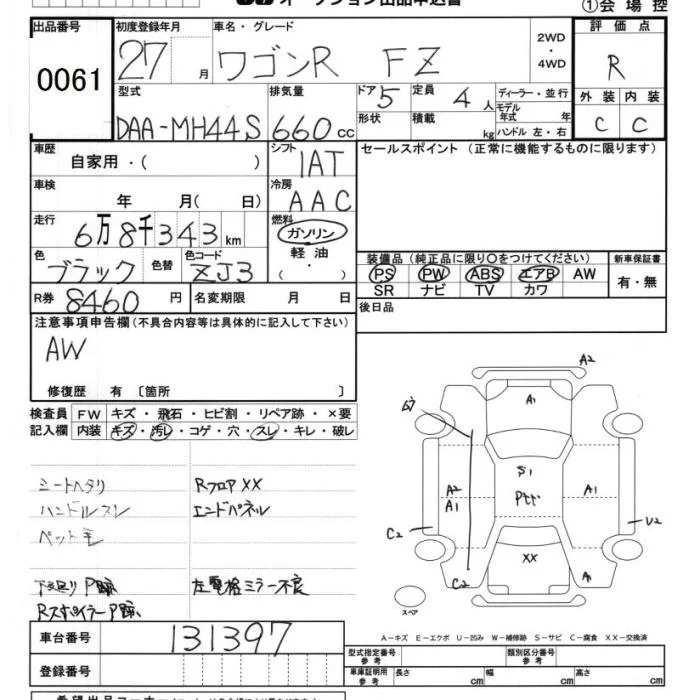 オークション出品申込書
①会場控
出品番号 初度登録年月 車名・グレード 評価点
0061 27 月 ワゴンR FZ 2WD・4WD R
型式 排気量 ドア 5 定員 4 人 ディーラー・並行 外装 内装
DAA-MH44S 660 cc 形状 積載 kg モデル年式 年 ハンドル 左・右 C C
車歴 自家用・( ) シフト IAT セールスポイント (正常に機能するものに限ります)
車検 年 月( 日) 冷房 AAC
走行 6万8千343km 燃料 ガソリン
色 ブラック 色替 色コード ZJ3 軽油・( )
装備品(純正品に限り〇をつけてください) 新車保証書
PS PW ABS エアB AW 有・無
SR ナビ TV カワ
R券 8460 円 名変期限 月 日 後日品
注意事項申告欄(不具合内容等は具体的に記入して下さい)
AW
修復歴 有 〔箇所 〕
検査員 FW キズ・飛石・ヒビ割・リペア跡・×要
記入欄 内装 キズ・汚レ・コゲ・穴・スレ・キレ・破レ
シートヘタリ RフロアXX
ハンドルスレ エンドパネル
ペット毛
下廻りP跡 左電格ミラー不良
RスポイラーP跡
A2
A1
S1
A2 A1 A1
C2 U2
XX
C2 A1
スペア
A-キズ E-エクボ U-凹み W-補修跡 S-サビ C-腐食 XX-交換済
車台番号 131397
登録番号
型式指定番号 参考 類別区分番号 参考
車庫証明用 参考 長さ cm 幅 cm 高さ cm